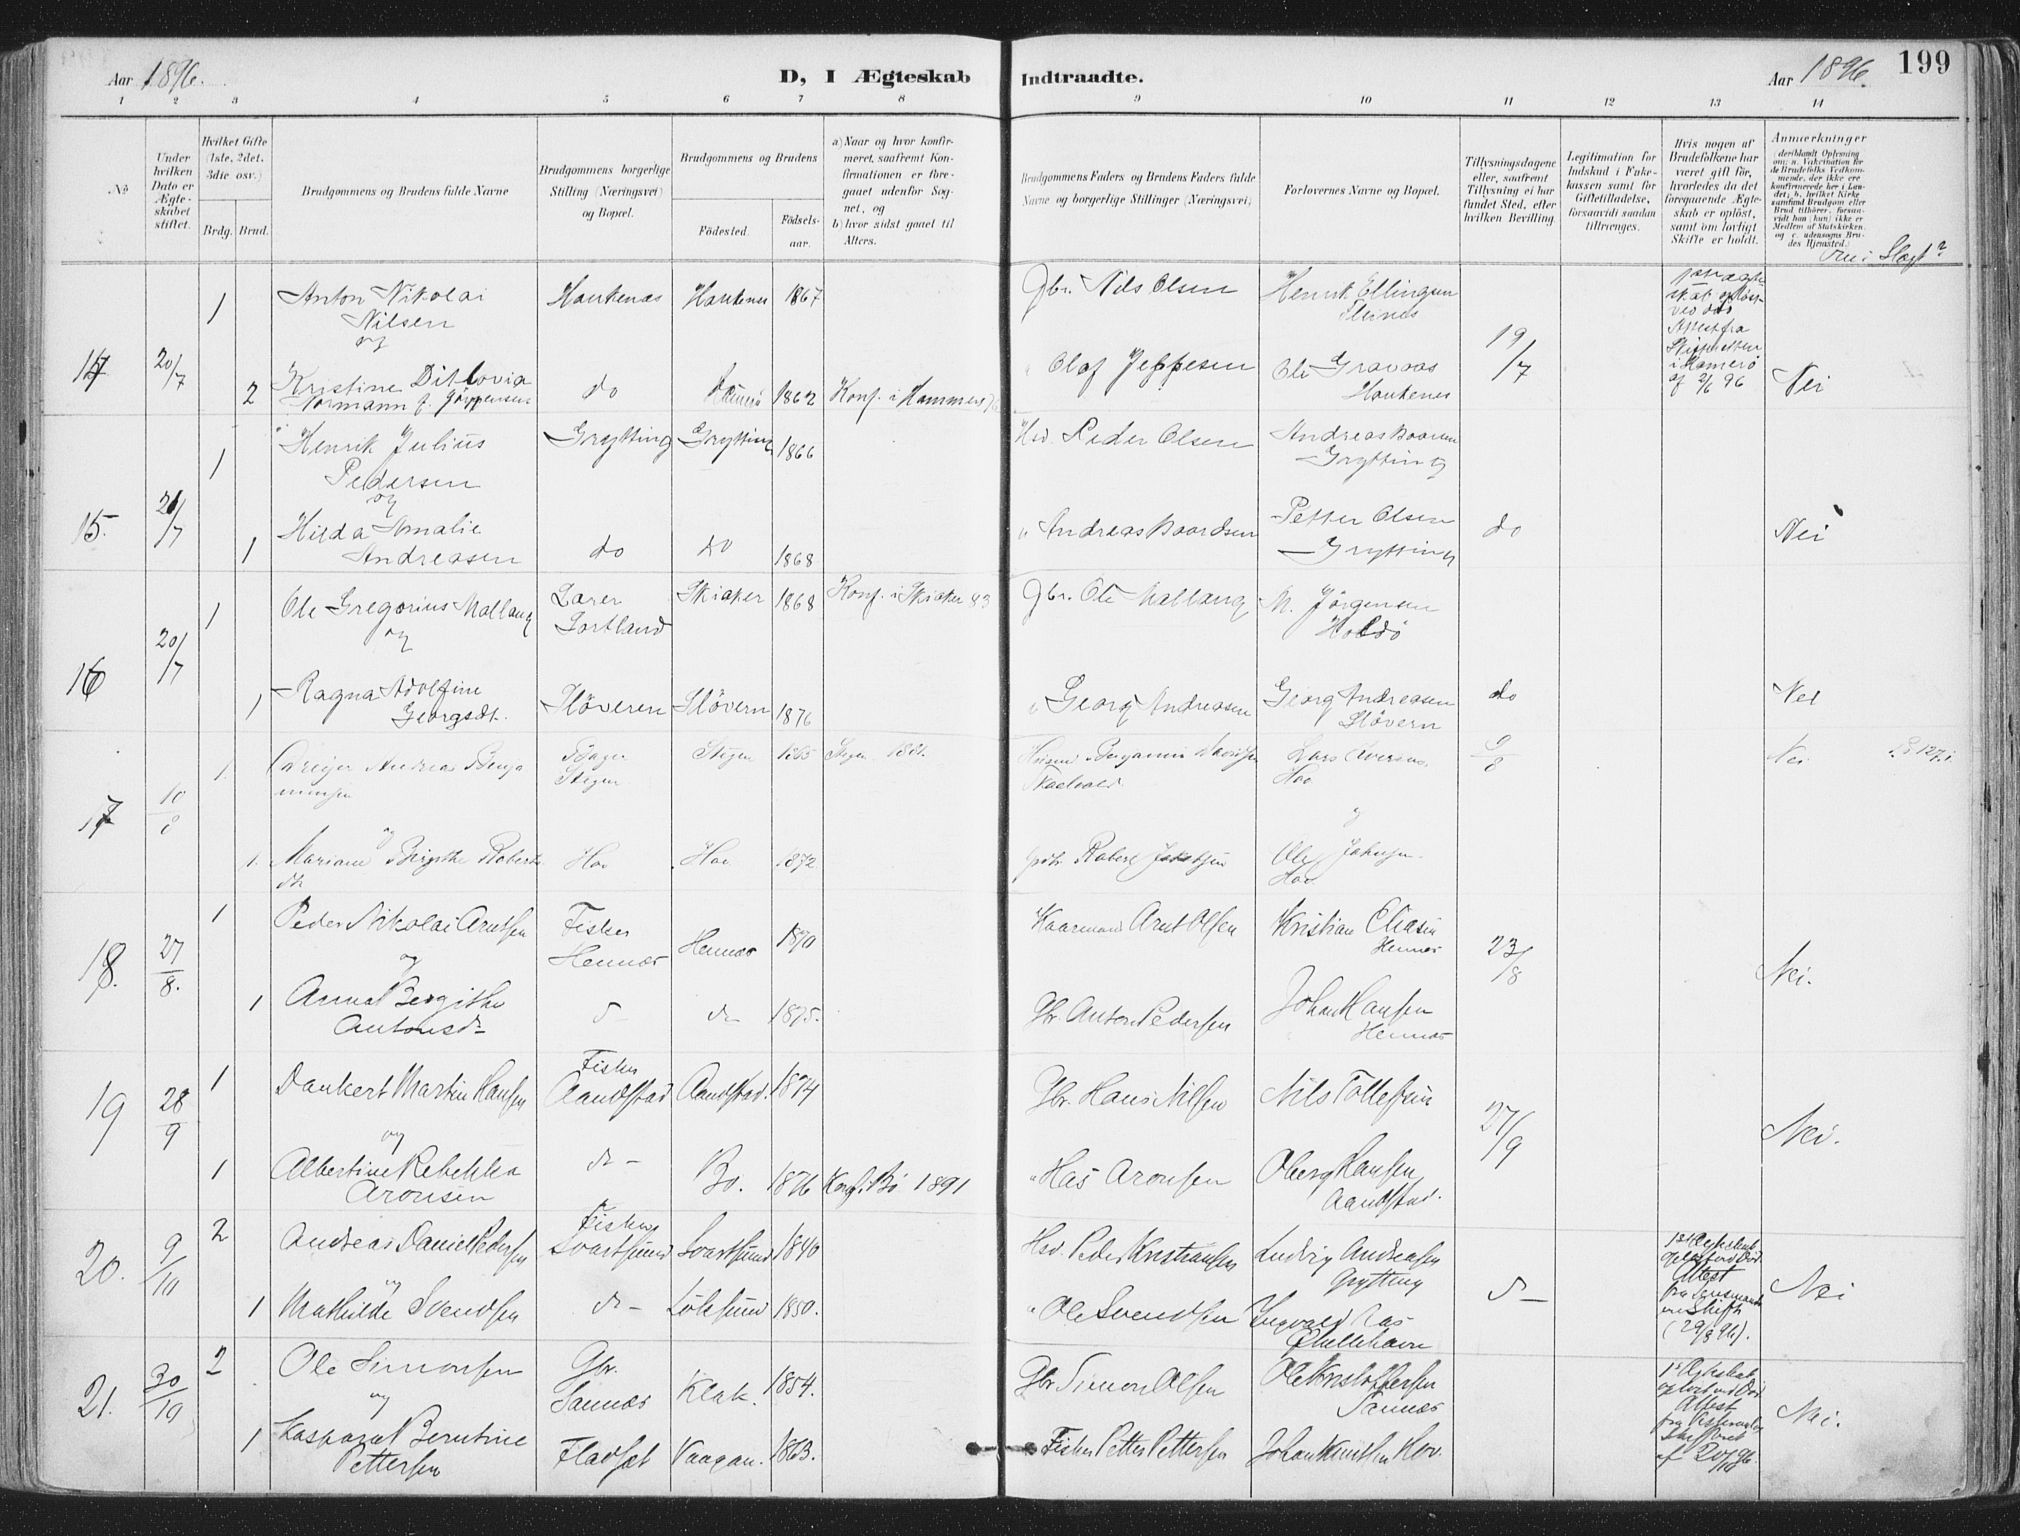 Aar 1896.
D, I Ægteskab
Indtraadte.
Aar 1896.
199
1 2 3 4 5 6 7 8 9 10 11 12 13 14
No
Under hvilken Dato er Ægteskabet stiftet.
Hvilket Gifte (1ste, 2det, 3die osv.)
Brdg. Brud.
Brudgommens og Brudens fulde Navne
Brudgommens borgerlige Stilling (Næringsvei) og Bopæl.
Brudgommens og Brudens
Fødested.
Fødselsaar.
a) Naar og hvor konfirmeret, saafremt Konfirmationen er foregaaet udenfor Sognet, og
b) hvor sidst gaaet til Alters.
Brudgommens Faders og Brudens Faders fulde Navne og borgerlige Stillinger (Næringsvei)
Forlovernes Navne og Bopæl.
Tillysningsdagene eller, saafremt Tillysning ei har fundet Sted, efter hvilken Bevilling.
Legitimation for Indskud i Enkekassen samt for Giftetilladelse, forsaavidt saadan tiltrænges.
Hvis nogen af Brudefolkene har været gift før, hvorledes da det foregaaende Ægteskab er opløst, samt om lovligt Skifte er holdt.
Anmærkninger
(deriblandt Oplysning om: a. Vakcination for de Brudefolks Vedkommende, der ikke ere konfirmerede her i Landet; b. hvilket Kirkesamfund Brudgom eller Brud tilhører, forsaavidt han (hun) ikke er Medlem af Statskirken, og c. udensogns Brudes Hjemsted.)
Ere i Slægt?
1 Anton Nikolai Haukenes Haukenes 1867 Gbr. Nils Olsen Henrik Ellingsen
Nilsen Steines
og
14 20/7 19/7
2 Kristine Ditlovia do Hamerø 1862 Konf. i Hammerø " Olaf Jeppesen Ole Gravaas Nei
Normann f. Jörgensen Haukenes
skab opløst ved død Attest fra Skifteretten i Hamerø af 2/6 96
1 Henrik Julius Grytting Grytting 1866 Hsd. Peder Olsen Andreas Baardsen
Pedersen Grytting
og
15. 21/7 do
1 Hilda Amalie do do 1868 " Andreas Baardsen Petter Olsen Nei
Andreasen Grytting
1 Ole Gregorius Mallang Lærer Skiaker 1868 Konf. i Skiaker 83 Gbr. Ole Mallang M. Jörgensen
og Sortland Holdö
16 20/7
1 Ragna Adolfine Slöveren Slövern 1876 " Georg Andreasen Georg Andreasen do Nei
Georgsdt. Slövern
1 Andreas Benja Stegen 1865 Stegen 1881. Benjamin Davidsen Lars Iversen 9/8 Nei
minsen Stegen Hov
17 10/8 og
1. Mariane Birgithe Roberts Hov Hov 1872 Robert Jakobsen Ole Johnsen
dtr Hov
1 Peder Nikolai Arntsen Fisker Hennæs 1870 Kaarmand Arnt Olsen Kristian Eliasen
og Hennæs Hennæs
18. 27/8. 23/8 Nei.
1 Anna Bergithe do do 1875. Gbr. Anton Pedersen Johan Hansen
Antonsdr Hennæs
1 Dankert Martin Hansen Fisker Aandstad Aandstad. 1874 Gbr. Hans Nilsen Nils Tollefsen
19 28/9 og 27/9 Nei.
1 Albertine Rebekka do - Bø. 1876 Konf. i Bø 1891 " Has Aronsen Oberg Hansen
Aronsen Aandstad.
2 Andreas Daniel Pedersen Fisker Svartsund Svartsund 1840 Hsd. Peder Kristiansen Ludvig Andreasen
Grytting
20. 9/10 og do - Nei
1 Mathilde Svendsen do - Löksund 1850. " Ole Svendsen Ingvald
1st Ægteskab opløst ved Død Attest fra Lensmanden om Skifte (29/8 96).
2 Ole Simonsen Gbr. Sannæs Klak. 1854. Gbr Simon Olsen Ole Kristoffersen
og Sannæs
21. 30/10 Nei.
1 Kaspara Berntine Fladset Vaagan. 1863. Fisker Petter Pettersen Johan Knutsen Hov.
Pettersen
1st Ægteskab opløst ved Død Attest fra Skifteret af 20/10 96.